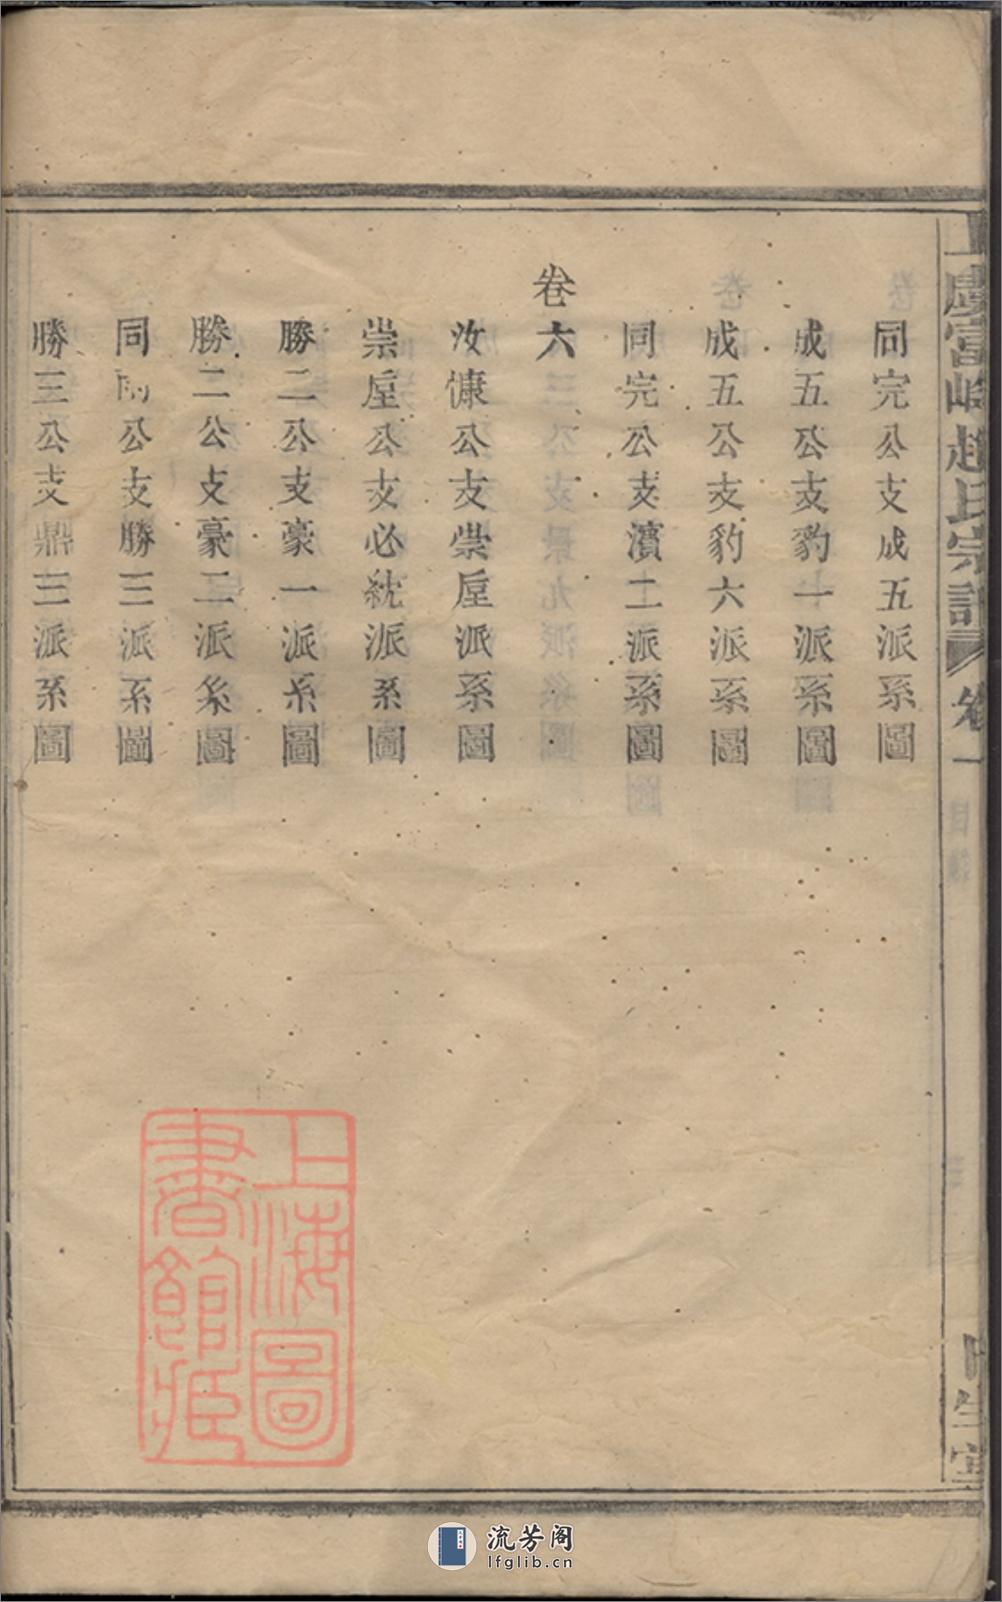 上虞富峰趙氏宗譜 卷一 目錄
同完公支成五派系圖
成五公支豹一派系圖
成五公支豹六派系圖
同完公支濱二派系圖
卷六
汝慷公支崇垕派系圖
崇垕公支必統派系圖
勝二公支豪一派系圖
勝二公支豪二派系圖
同公支勝三派系圖
勝三公支鼎三派系圖
上海圖
書館藏
流芳阁
lfglib.cn